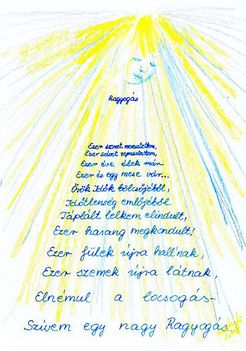 Ragyogás
Ezer szemet
Ezer szívet
Ezer éve élek már
Ezer és egy mese vár...
Örök Idők bölcsőjéből,
Időtlenség emlőjéből
Táplált lelkem elindult,
Ezer harang megkondult!
Ezer fülek újra hallnak,
Ezer szemek újra látnak,
Elnémul a locsogás-
Szívem egy nagy Ragyogás.